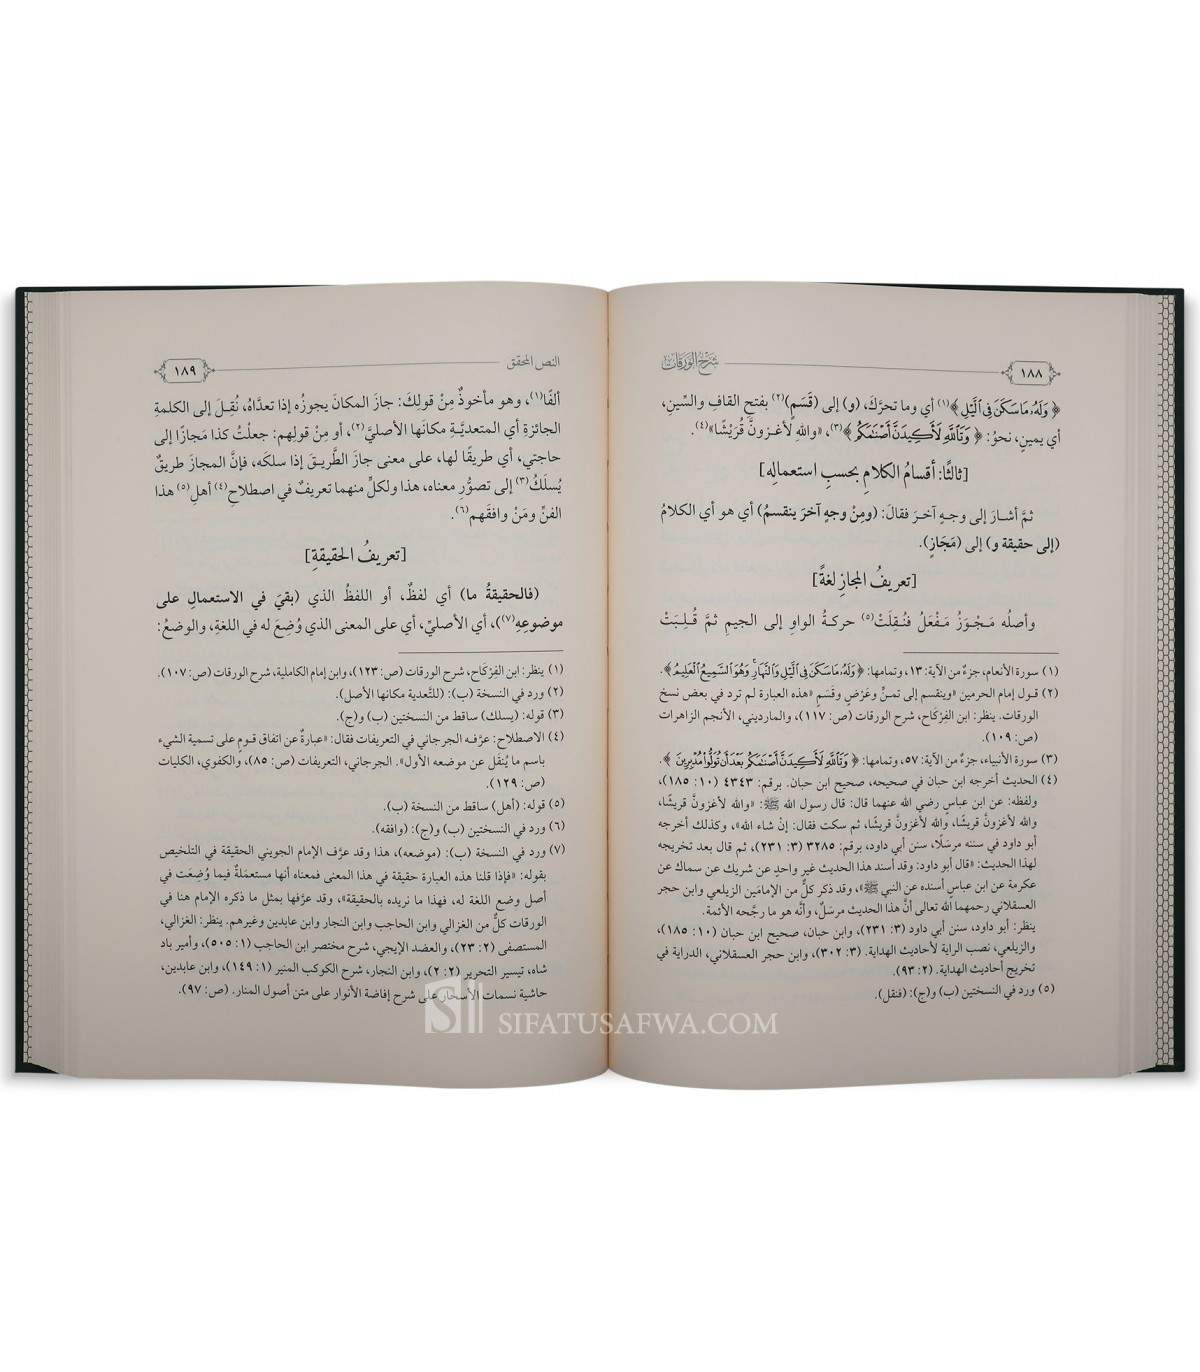 ١٨٨
شرح الورقات
﴿ وَلَهُۥ مَا سَكَنَ فِي ٱلَّيۡلِ ﴾(١) أي وما تحرَّكَ، (و) إلى (قَسَمٍ)(٢) بفتحِ القافِ والسِّينِ،
أي يمينٍ، نحوُ: ﴿ وَتَٱللَّهِ لَأَكِيدَنَّ أَصۡنَٰمَكُم ﴾(٣)، «واللهِ لأغزونَّ قُرَيْشًا»(٤).
[ثالثًا: أقسامُ الكلامِ بحسبِ استعمالِه]
ثمَّ أشارَ إلى وجهٍ آخرَ فقالَ: (ومِنْ وجهٍ آخرَ ينقسمُ) أي هو أي الكلامُ
(إلى حقيقة و) إلى (مَجَازٍ).
[تعريفُ المجازِ لغةً]
وأصلُه مَجْوَزُ مَفْعَلُ فنُقِلَتْ(٥) حركةُ الواوِ إلى الجيمِ ثمَّ قُلِبَتْ
(١) سورة الأنعام، جزءٌ من الآية: ١٣، وتمامها: ﴿ وَلَهُۥ مَا سَكَنَ فِي ٱلَّيۡلِ وَٱلنَّهَارِۚ وَهُوَ ٱلسَّمِيعُ ٱلۡعَلِيمُ ﴾.
(٢) قول إمام الحرمين «وينقسم إلى تمنٍّ وعَرْضٍ وقَسَمٍ «هذه العبارة لم ترد في بعض نسخ
الورقات. ينظر: ابن الفِرْكَاح، شرح الورقات (ص: ١١٧)، والمارديني، الأنجم الزاهرات
(ص: ١٠٩).
(٣) سورة الأنبياء، جزءٌ من الآية: ٥٧، وتمامها: ﴿ وَتَٱللَّهِ لَأَكِيدَنَّ أَصۡنَٰمَكُم بَعۡدَ أَن تُوَلُّواْ مُدۡبِرِينَ ﴾.
(٤) الحديث أخرجه ابن حبان في صحيحه، صحيح ابن حبان. برقم: ٤٣٤٣ (١٠: ١٨٥)،
ولفظه: عن ابن عباسٍ رضي الله عنهما قال: قال رسول الله ﷺ: «والله لأغزونَّ قريشًا،
والله لأغزونَّ قريشًا، والله لأغزونَّ قريشًا، ثم سكت فقال: إنْ شاء الله»، وكذلك أخرجه
أبو داود في سننه مرسَلًا، سنن أبي داود، برقم: ٣٢٨٥ (٣: ٢٣١)، ثم قال بعد تخريجه
لهذا الحديث: «قال أبو داود: وقد أسند هذا الحديث غير واحدٍ عن شريك عن سماك عن
عكرمة عن ابن عباس أسنده عن النبي ﷺ»، وقد ذكر كلٌّ من الإمامَين الزيلعي وابن حجر
العسقلاني رحمهما الله تعالى أنَّ هذا الحديث مرسَلٌ، وأنَّه هو ما رجَّحه الأئمة.
ينظر: أبو داود، سنن أبي داود (٣: ٢٣١)، وابن حبان، صحيح ابن حبان (١٠: ١٨٥)،
والزيلعي، نصب الراية لأحاديث الهداية. (٣: ٣٠٢)، وابن حجر العسقلاني، الدراية في
تخريج أحاديث الهداية. (٢: ٩٣).
(٥) ورد في النسختين (ب) و(ج): (فنقل).
النص المحقق
١٨٩
ألفًا(١)، وهو مأخوذٌ مِنْ قولِكَ: جازَ المكانَ يجوزُه إذا تعدَّاهُ، نُقِلَ إلى الكلمةِ
الجائزةِ أي المتعديَّةِ مكانَها الأصليَّ(٢)، أو مِنْ قولِهم: جعلْتُ كذا مَجازًا إلى
حاجتي، أي طريقًا لها، على معنى جازَ الطَّريقَ إذا سلكَه، فإنَّ المجازَ طريقٌ
يُسلَكُ(٣) إلى تصوُّرِ معناه، هذا ولكلٍّ منهما تعريفٌ في اصطلاحِ(٤) أهلِ(٥) هذا
الفنِّ ومَنْ وافقَهم(٦).
[تعريفُ الحقيقةِ]
(فالحقيقةُ ما) أي لفظٌ، أو اللفظُ الذي (بقيَ في الاستعمالِ على
موضوعِهِ(٧))، أي الأصليِّ، أي على المعنى الذي وُضِعَ له في اللغةِ، والوضعُ:
(١) ينظر: ابن الفِرْكَاح، شرح الورقات (ص: ١٢٣)، وابن إمام الكاملية، شرح الورقات (ص: ١٠٧).
(٢) ورد في النسخة (ب): (للتَّعدية مكانها الأصل).
(٣) قوله: (يسلك) ساقط من النسختين (ب) و(ج).
(٤) الاصطلاح: عرَّفه الجرجاني في التعريفات فقال: «عبارةٌ عن اتفاق قومٍ على تسمية الشيء
باسم ما يُنقَل عن موضعه الأول». الجرجاني، التعريفات (ص: ٨٥)، والكفوي، الكليات
(ص: ١٢٩).
(٥) قوله: (أهل) ساقط من النسخة (ب).
(٦) ورد في النسختين (ب) و(ج): (وافقه).
(٧) ورد في النسخة (ب): (موضعه)، هذا وقد عرَّف الإمام الجويني الحقيقة في التلخيص
بقوله: «فإذا قلنا هذه العبارة حقيقة في هذا المعنى فمعناه أنها مستعمَلةٌ فيما وُضِعَت في
أصل وضع اللغة له، فهذا ما نريده بالحقيقة»، وقد عرَّفها بمثل ما ذكره الإمام هنا في
الورقات كلٌّ من الغزالي وابن الحاجب وابن النجار وابن عابدين وغيرهم. ينظر: الغزالي،
المستصفى (٢: ٢٣)، والعضد الإيجي، شرح مختصر ابن الحاجب (١: ٥٠٥)، وأمير باد
شاه، تيسير التحرير (٢: ٢)، وابن النجار، شرح الكوكب المنير (١: ١٤٩)، وابن عابدين،
حاشية نسمات الأسحار على شرح إفاضة الأنوار على متن أصول المنار. (ص: ٩٧).
SIFATUSAFWA.COM